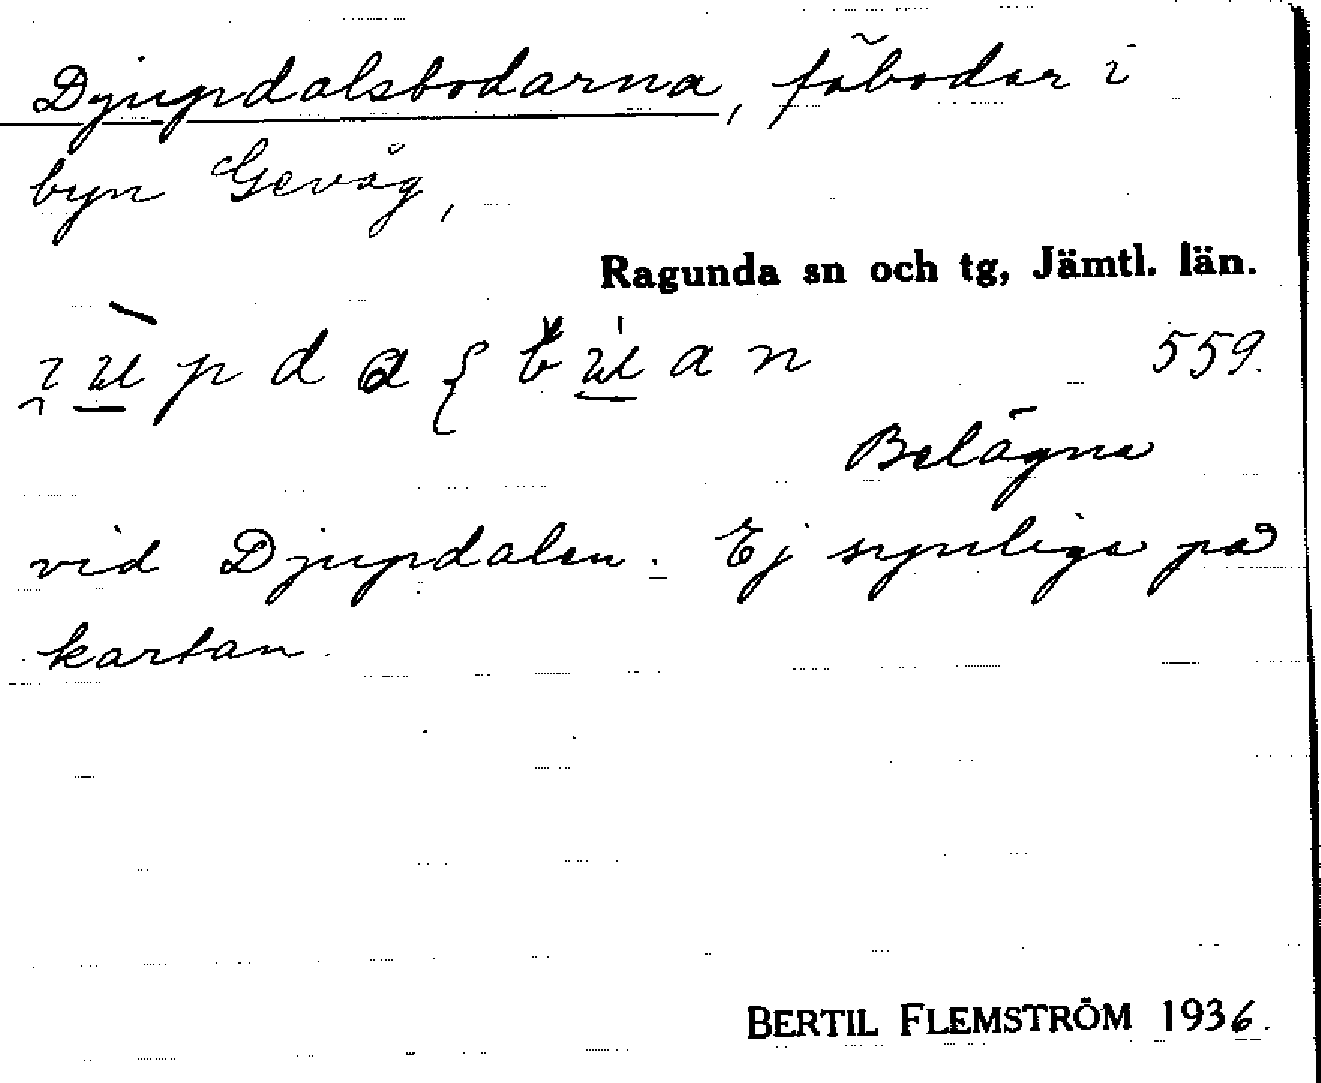 Djupdalsbodarna, fäbodar i
byn Gevåg,
Ragunda sn och tg, Jämtl. län.
559.
Belägna
vid Djupdalen. Ej synliga på
kartan.
BERTIL FLEMSTRÖM 1936.